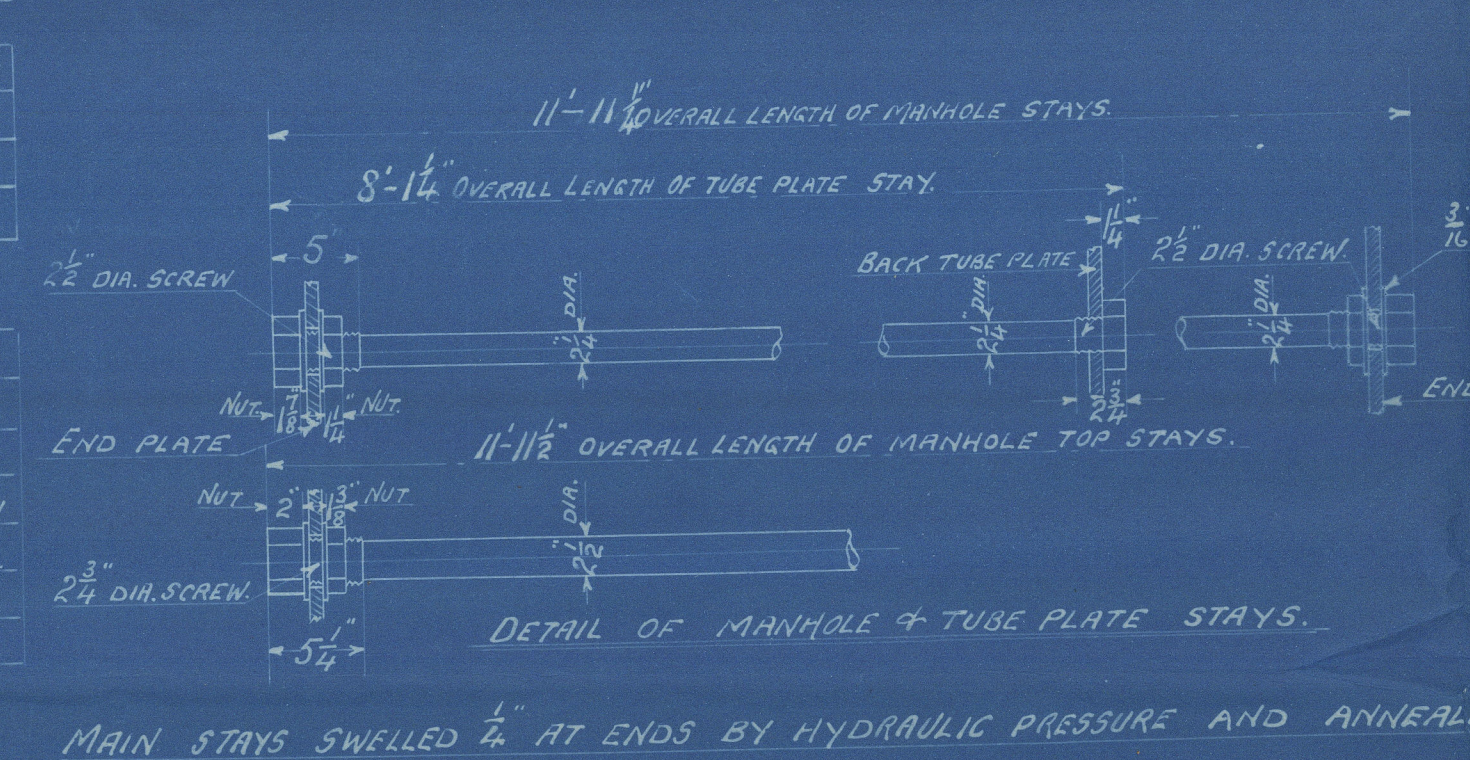 11'-11 1/4" OVERALL LENGTH OF MANHOLE STAYS.
8'-1 1/4" OVERALL LENGTH OF TUBE PLATE STAY.
5"
1 1/4"
3/16"
2 1/2" DIA. SCREW
BACK TUBE PLATE
2 1/2" DIA. SCREW.
2 1/4" DIA.
2 1/4" DIA.
2 1/4" DIA.
NUT. 1 7/8" 1 1/4" NUT.
2 3/4"
END
END PLATE
11'-11 1/2" OVERALL LENGTH OF MANHOLE TOP STAYS.
NUT 2" 1 3/8" NUT
2 1/2" DIA.
2 3/4" DIA. SCREW.
5 1/4"
DETAIL OF MANHOLE & TUBE PLATE STAYS.
MAIN STAYS SWELLED 1/4" AT ENDS BY HYDRAULIC PRESSURE AND ANNEAL